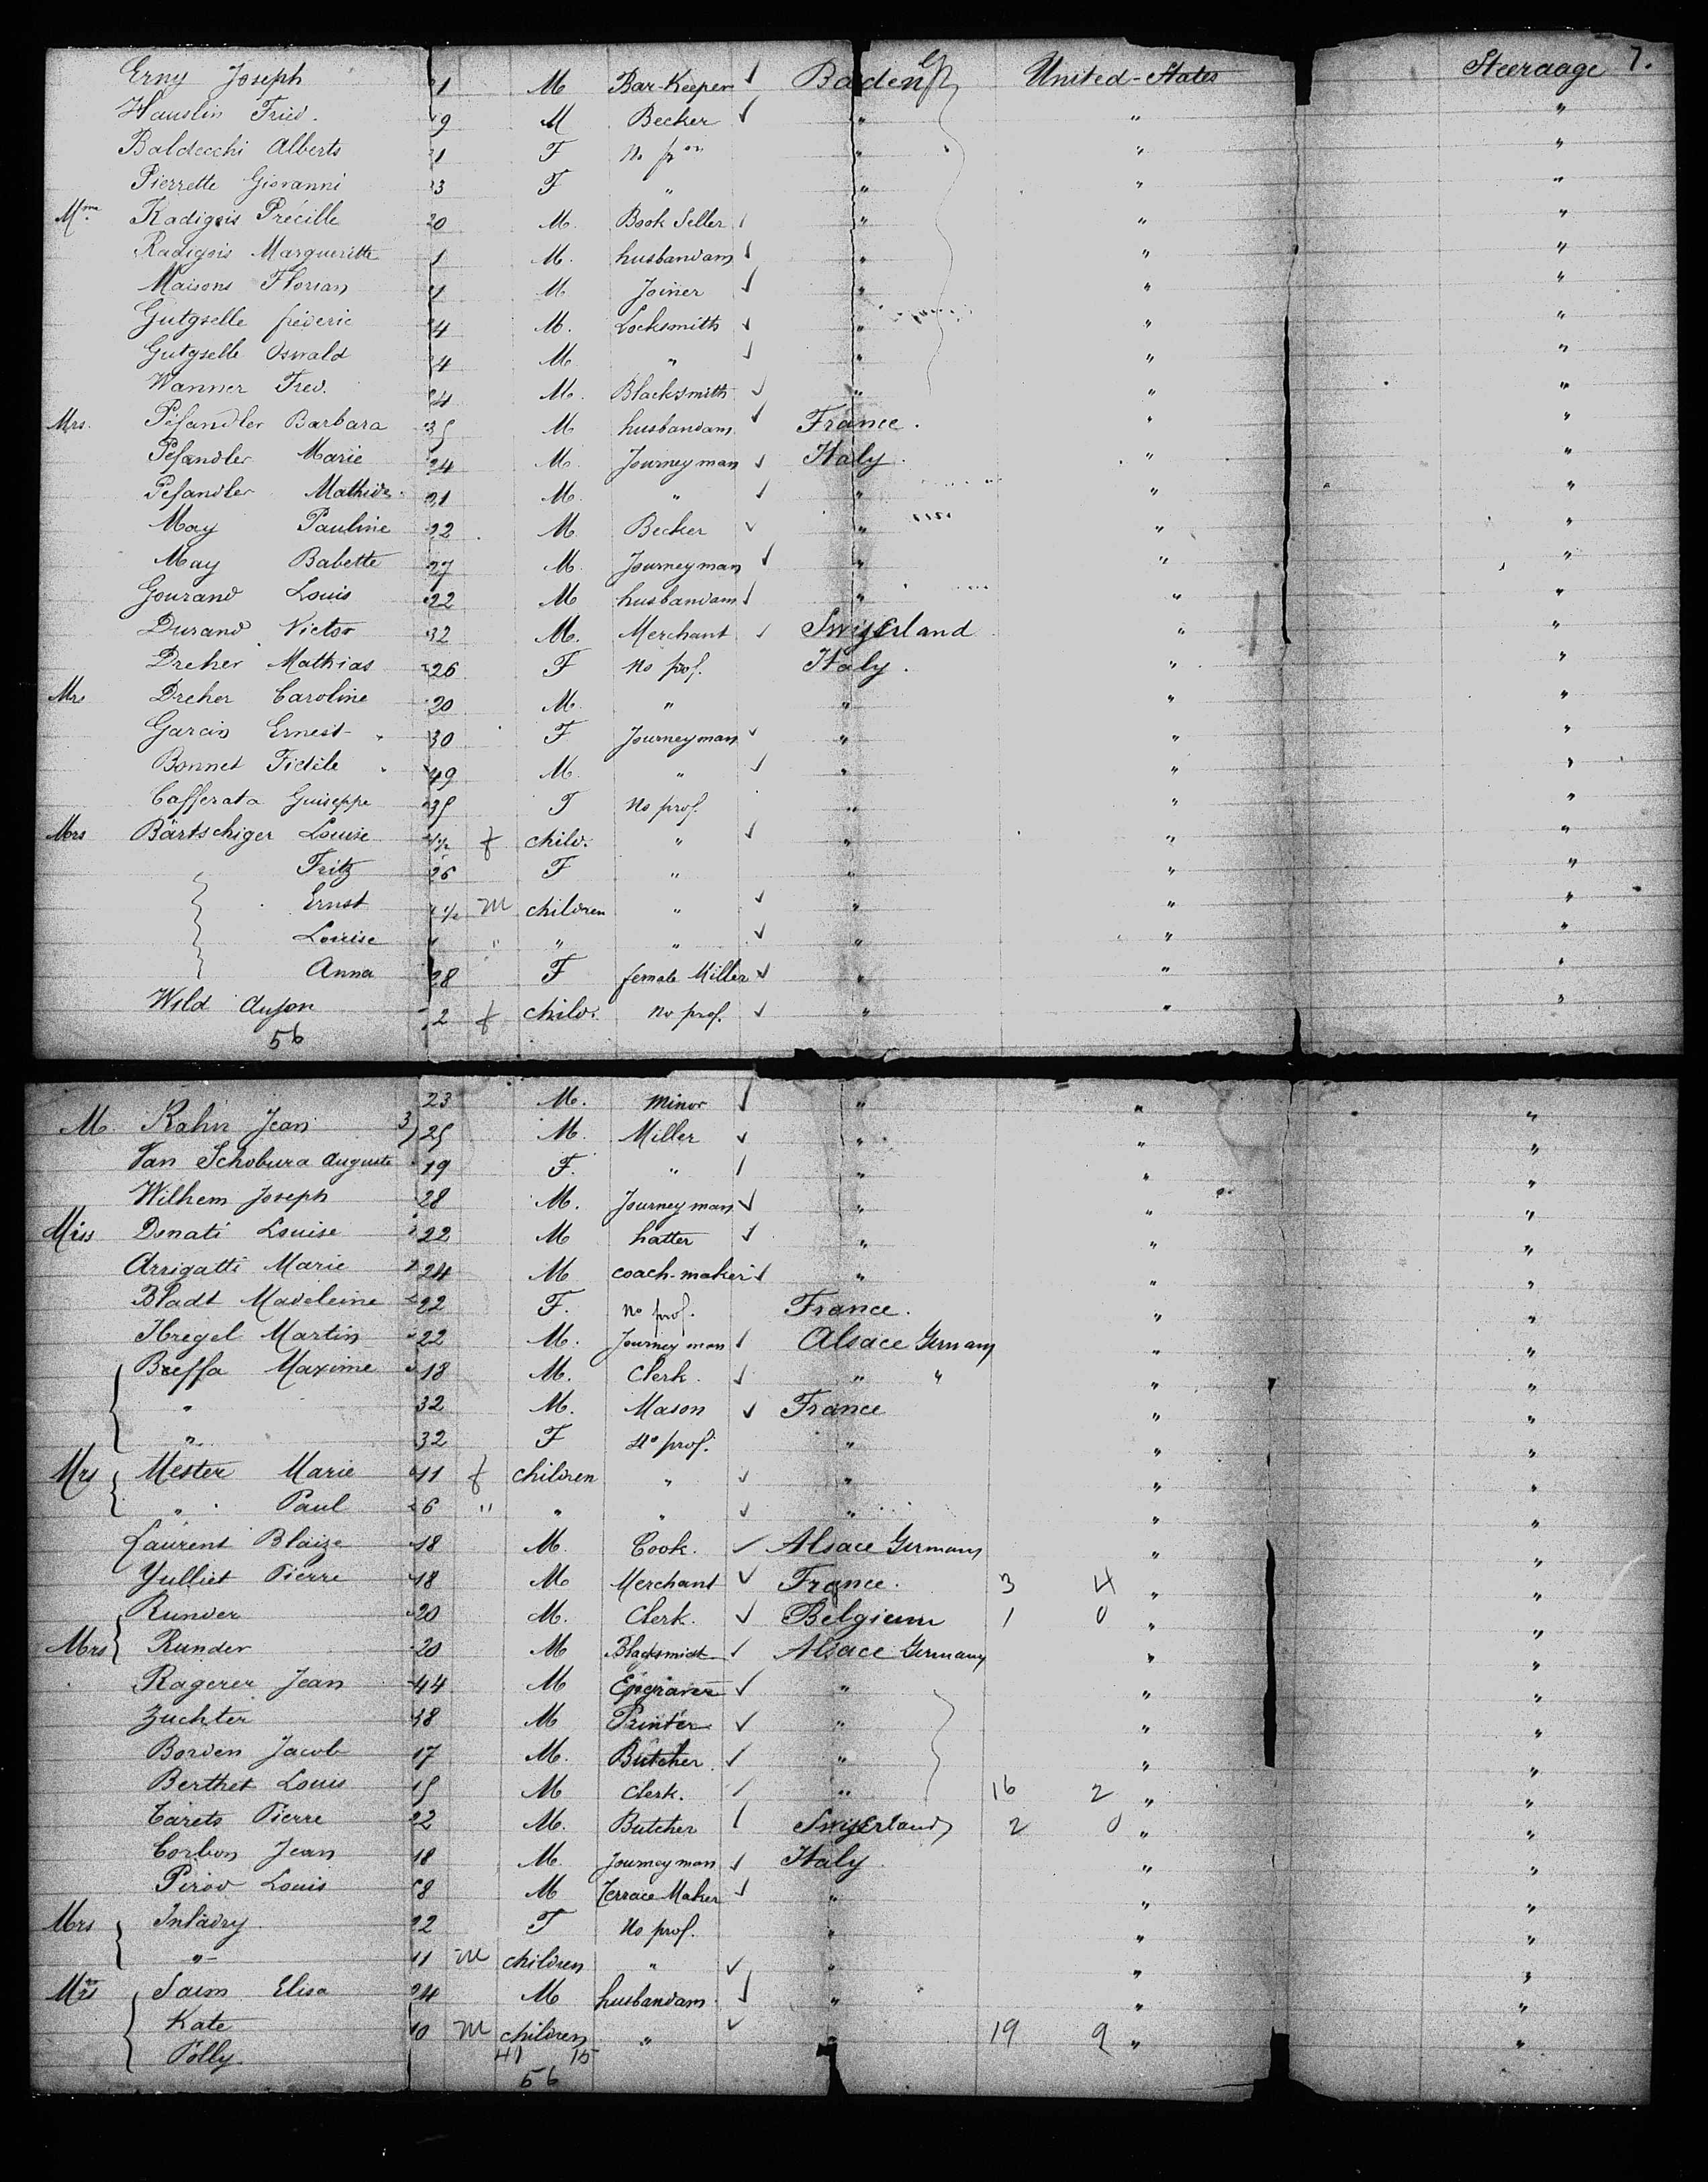 Erny Joseph 21 M Bar-Keeper ✓ Baden United-States Steeraage 7.
Hauslin Fried. 19 M Becker ✓ " " "
Baldecchi Alberts 21 F No pon " " "
Pierrette Giovanni 23 F " " " "
Mme Radigois Précille 20 M. Book Seller ✓ " " "
Radigois Margueritte 1 M. husbandam ✓ " " "
Maisons Florian 21 M Joiner ✓ " " "
Gutgselle fréderic 24 M. Locksmith ✓ " " "
Gutgselle Oswald 24 M. " ✓ " " "
Wanner Fred. 24 M. Blacksmith ✓ " " "
Mrs. Pefandler Barbara 35 M husbandam ✓ France. " "
Pefandler Marie 24 M. Journeyman ✓ Italy. " "
Pefandler Mathide 21 M. " ✓ " " "
May Pauline 22 M. Becker ✓ " " "
May Babette 27 M. Journeyman ✓ " " "
Gourand Louis 22 M husbandam ✓ " " "
Durand Victor 32 M. Merchant ✓ Swizerland " "
Dreher Mathias 26 F No prof. Italy. " "
Mrs Dreher Caroline 20 M. " " " "
Garcin Ernest 30 F Journeyman ✓ " " "
Bonnet Fidèle 49 M. " ✓ " " "
Cafferata Guiseppe 35 F No prof. " " "
Mrs Bärtschiger Louise 1/2 f child. " ✓ " " "
Fritz 26 F " " " "
Ernst 1/2 M children " ✓ " " "
Louise " " " ✓ " " "
Anna 28 F female Miller ✓ " " "
Wild 2 f child. No prof. ✓ " " "
56
23 M. Minor ✓ " " "
M. Rahn Jean 3) 25 M. Miller ✓ " " "
Van Schobura Auguste 19 F. " ✓ " " "
Wilhem Joseph 28 M. Journeyman ✓ " " "
Miss Donati Louise 22 M hatter ✓ " " "
Arrigatti Marie 24 M coach-maker ✓ " " "
Bladt Madeleine 22 F. No prof. France. " "
Hregel Martin 22 M. Journeyman ✓ Alsace Germany " "
Breffa Maxime 18 M. Clerk. ✓ " " " "
" 32 M. Mason ✓ France " "
" 32 F No prof. " " "
Mrs Mester Marie 11 f children " ✓ " " "
" Paul 6 " " " ✓ " " "
Laurent Blaize 18 M. Cook. ✓ Alsace Germany " "
Yulliet Pierre 18 M Merchant ✓ France. 3 4 " "
Runder 20 M. Clerk. ✓ Belgium 1 0 " "
Mrs Runder 20 M Blacksmist ✓ Alsace Germany " "
Ragerer Jean 44 M Engraver ✓ " " "
Zuchter 18 M Printer ✓ " " "
Borden Jacob 17 M. Butcher ✓ " " "
Berthet Louis 15 M Clerk. ✓ " 16 2 " "
Carets Pierre 22 M. Butcher ✓ Swizerland 2 0 " "
Corbon Jean 18 M. Journeyman ✓ Italy " "
Pirod Louis 28 M Terrace Maker ✓ " " "
Mrs Inladry. 22 F No prof. " " "
" 11 M children " ✓ " " "
Mrs Saim Elisa 24 M husbandam ✓ " " "
Kate 10 M children " ✓ " 19 9 " "
Polly 41 15
56